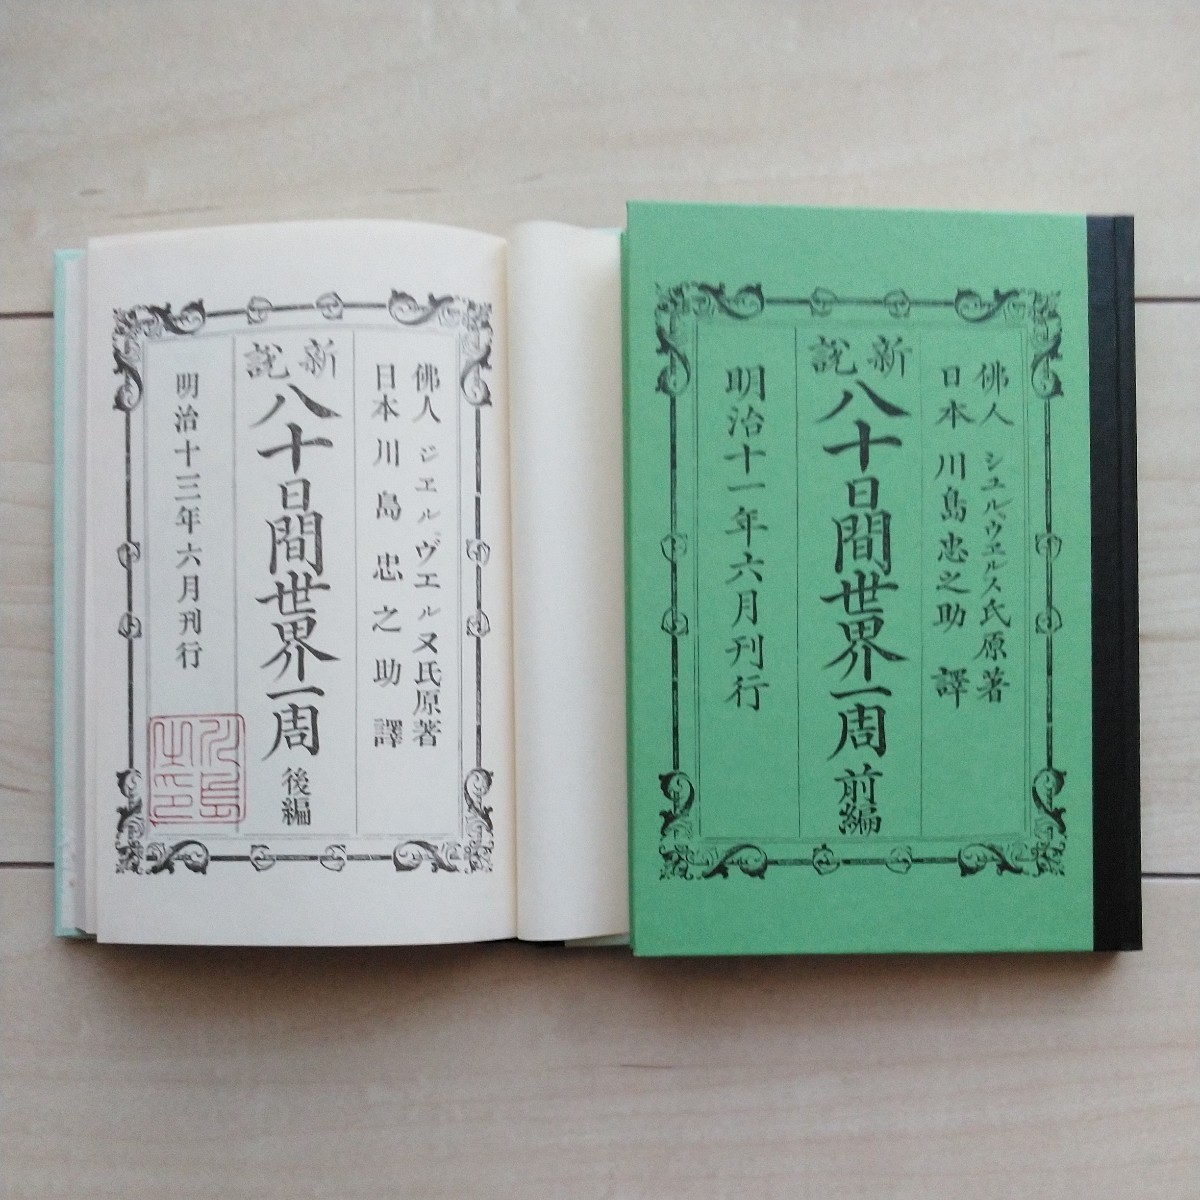 佛人 シユル、ヴヱルス氏原著
日本 川島忠之助 譯
新説
八十日間世界一周 前編
明治十一年六月刊行
佛人 ジエル、ヴエルヌ氏原著
日本 川島忠之助 譯
新説
八十日間世界一周 後編
明治十三年六月刊行
川島之印